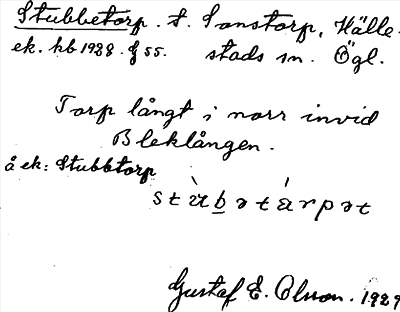 Stubbetorp. t. Sonstorp, Hälle-
ek. kb 1928. f 55. stads sn. Ögl.
Torp långt i norr invid
Bleklången.
å ek: Stubbtorp
stùbətárpət
Gustaf E. Olsson. 1929